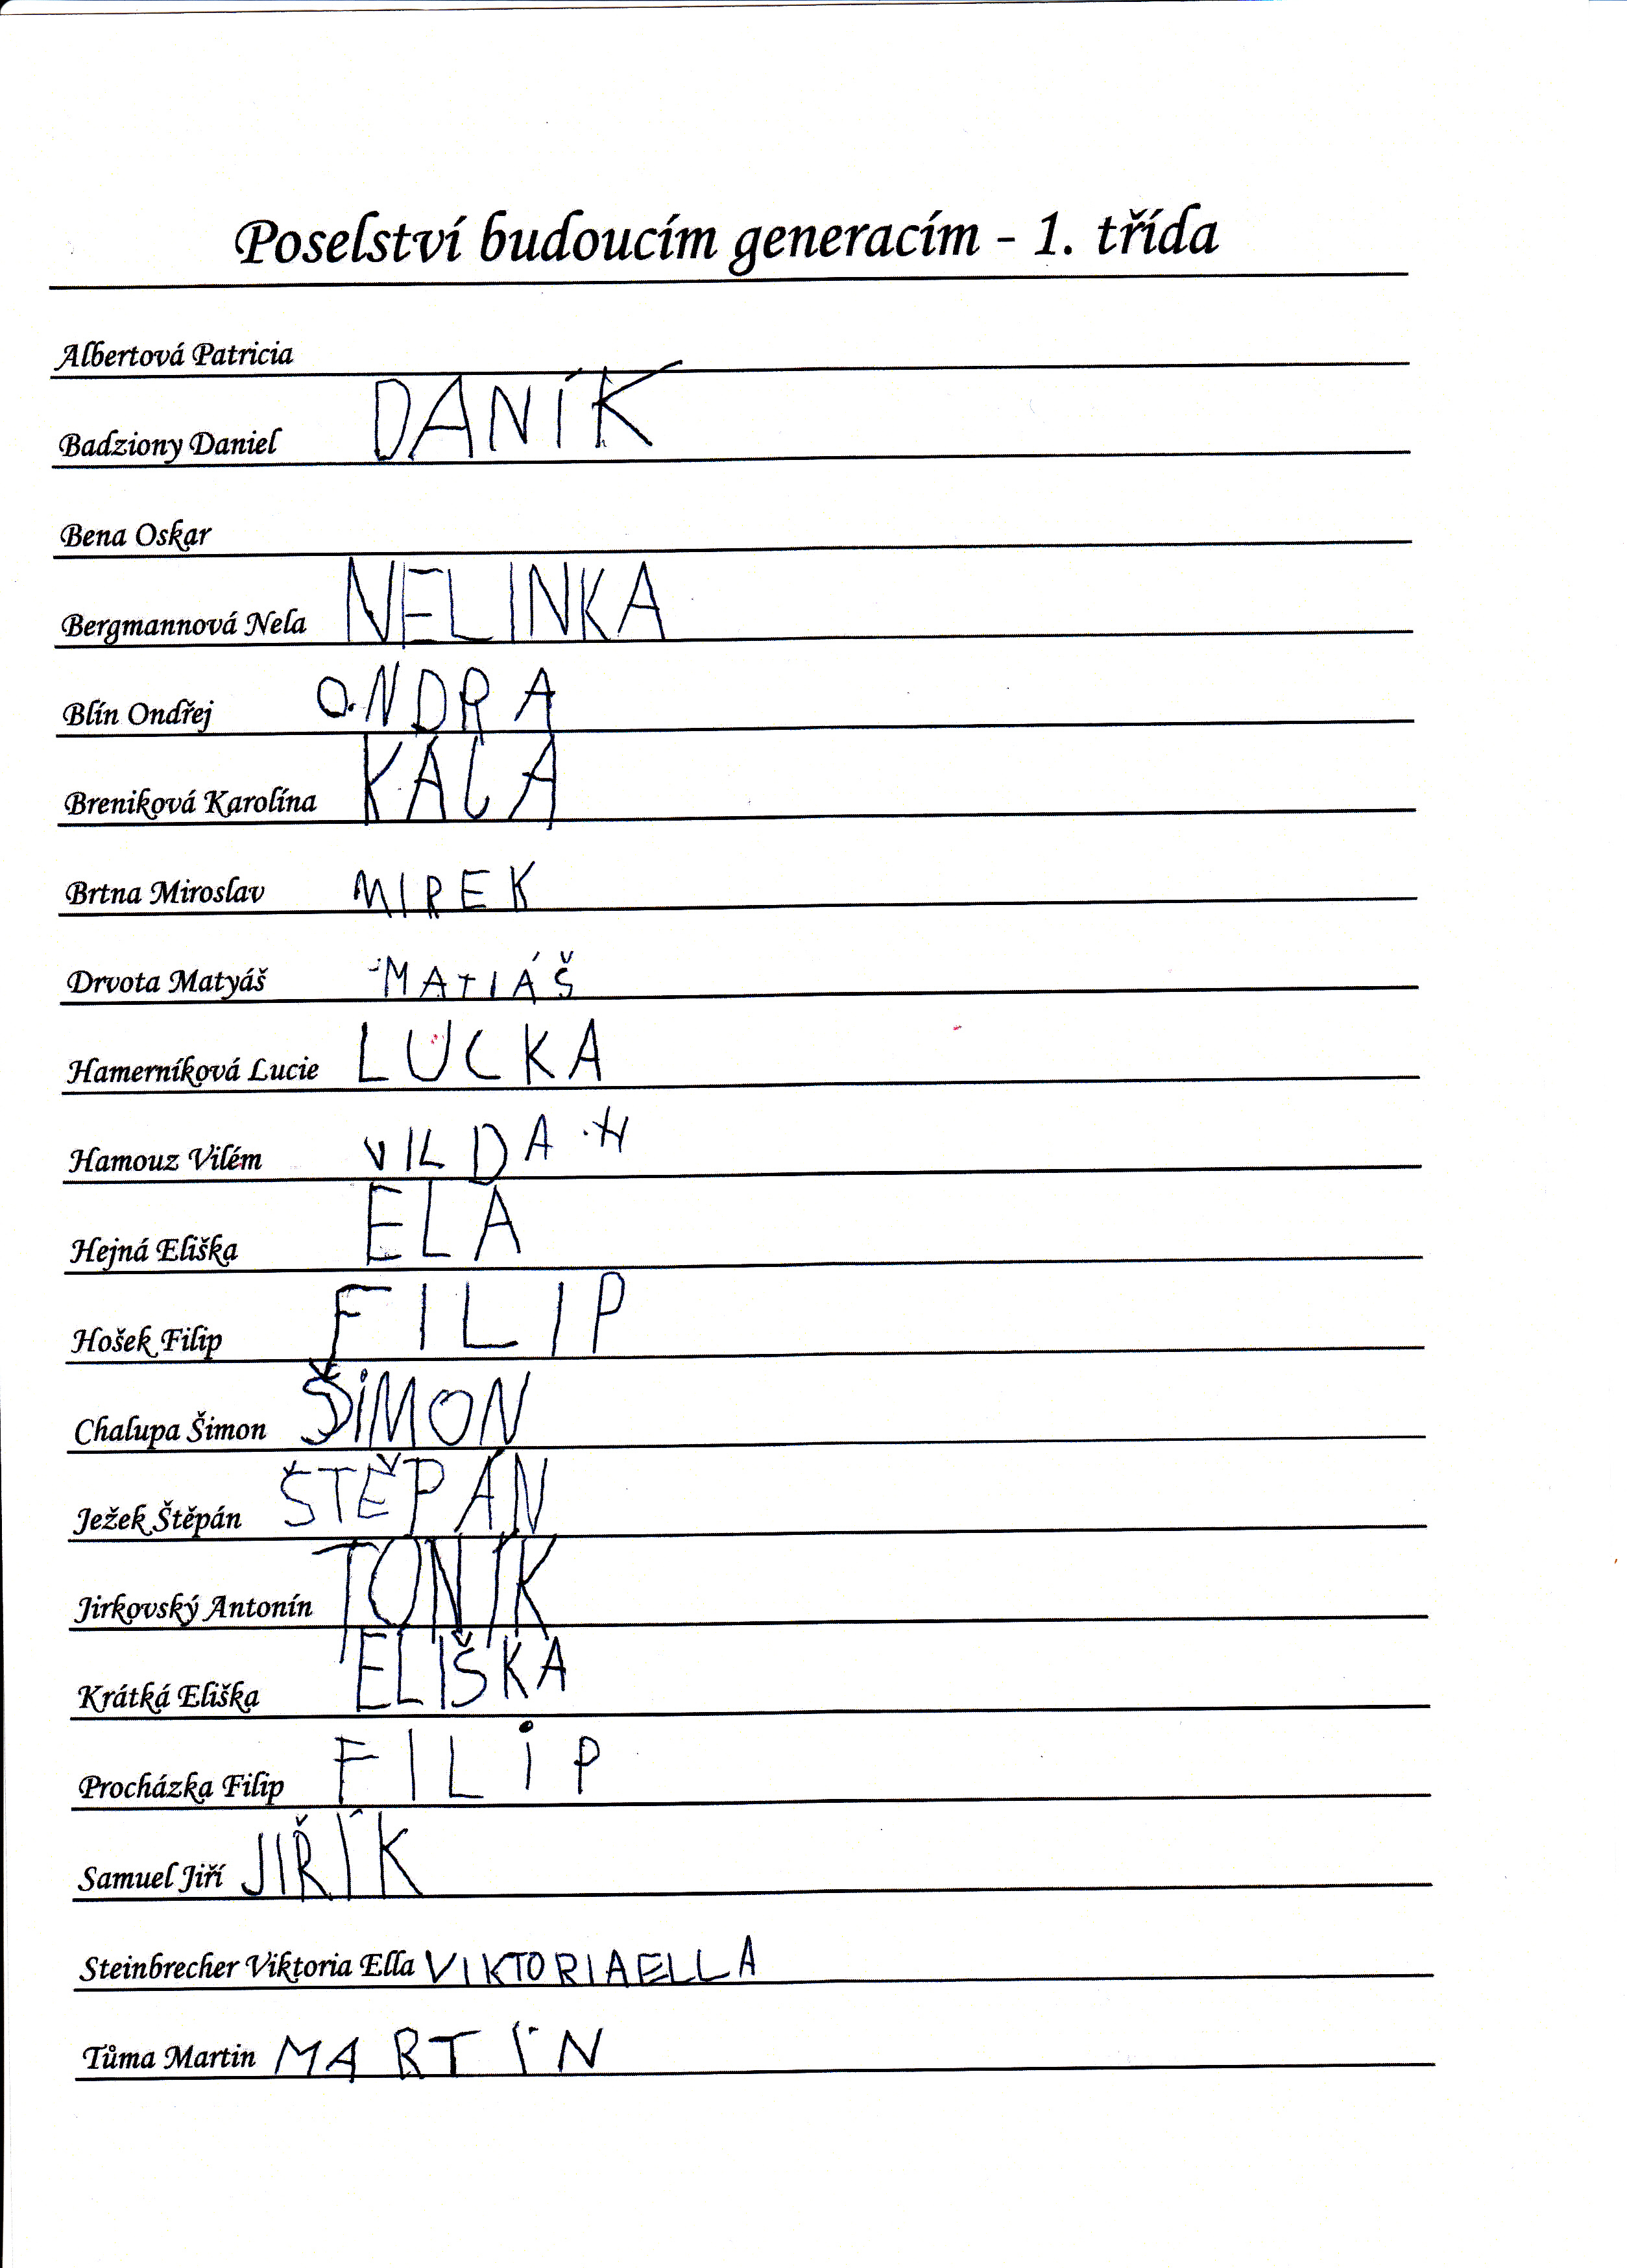 Poselství budoucím generacím - 1. třída
Albertová Patricia
Badziony Daniel DANÍK
Bena Oskar
Bergmannová Nela NELINKA
Blín Ondřej ONDRA
Breniková Karolína KÁCA
Brtna Miroslav MIREK
Drvota Matyáš MATIÁŠ
Hamerníková Lucie LUCKA
Hamouz Vilém VILDA.H
Hejná Eliška ELA
Hošek Filip FILIP
Chalupa Šimon ŠiMON
Ježek Štěpán ŠTĚPÁN
Jirkovský Antonín TONÍK
Krátká Eliška ELIŠKA
Procházka Filip FILiP
Samuel Jiří JIŘÍK
Steinbrecher Viktoria Ella VIKTORIAELLA
Tůma Martin MARTIN